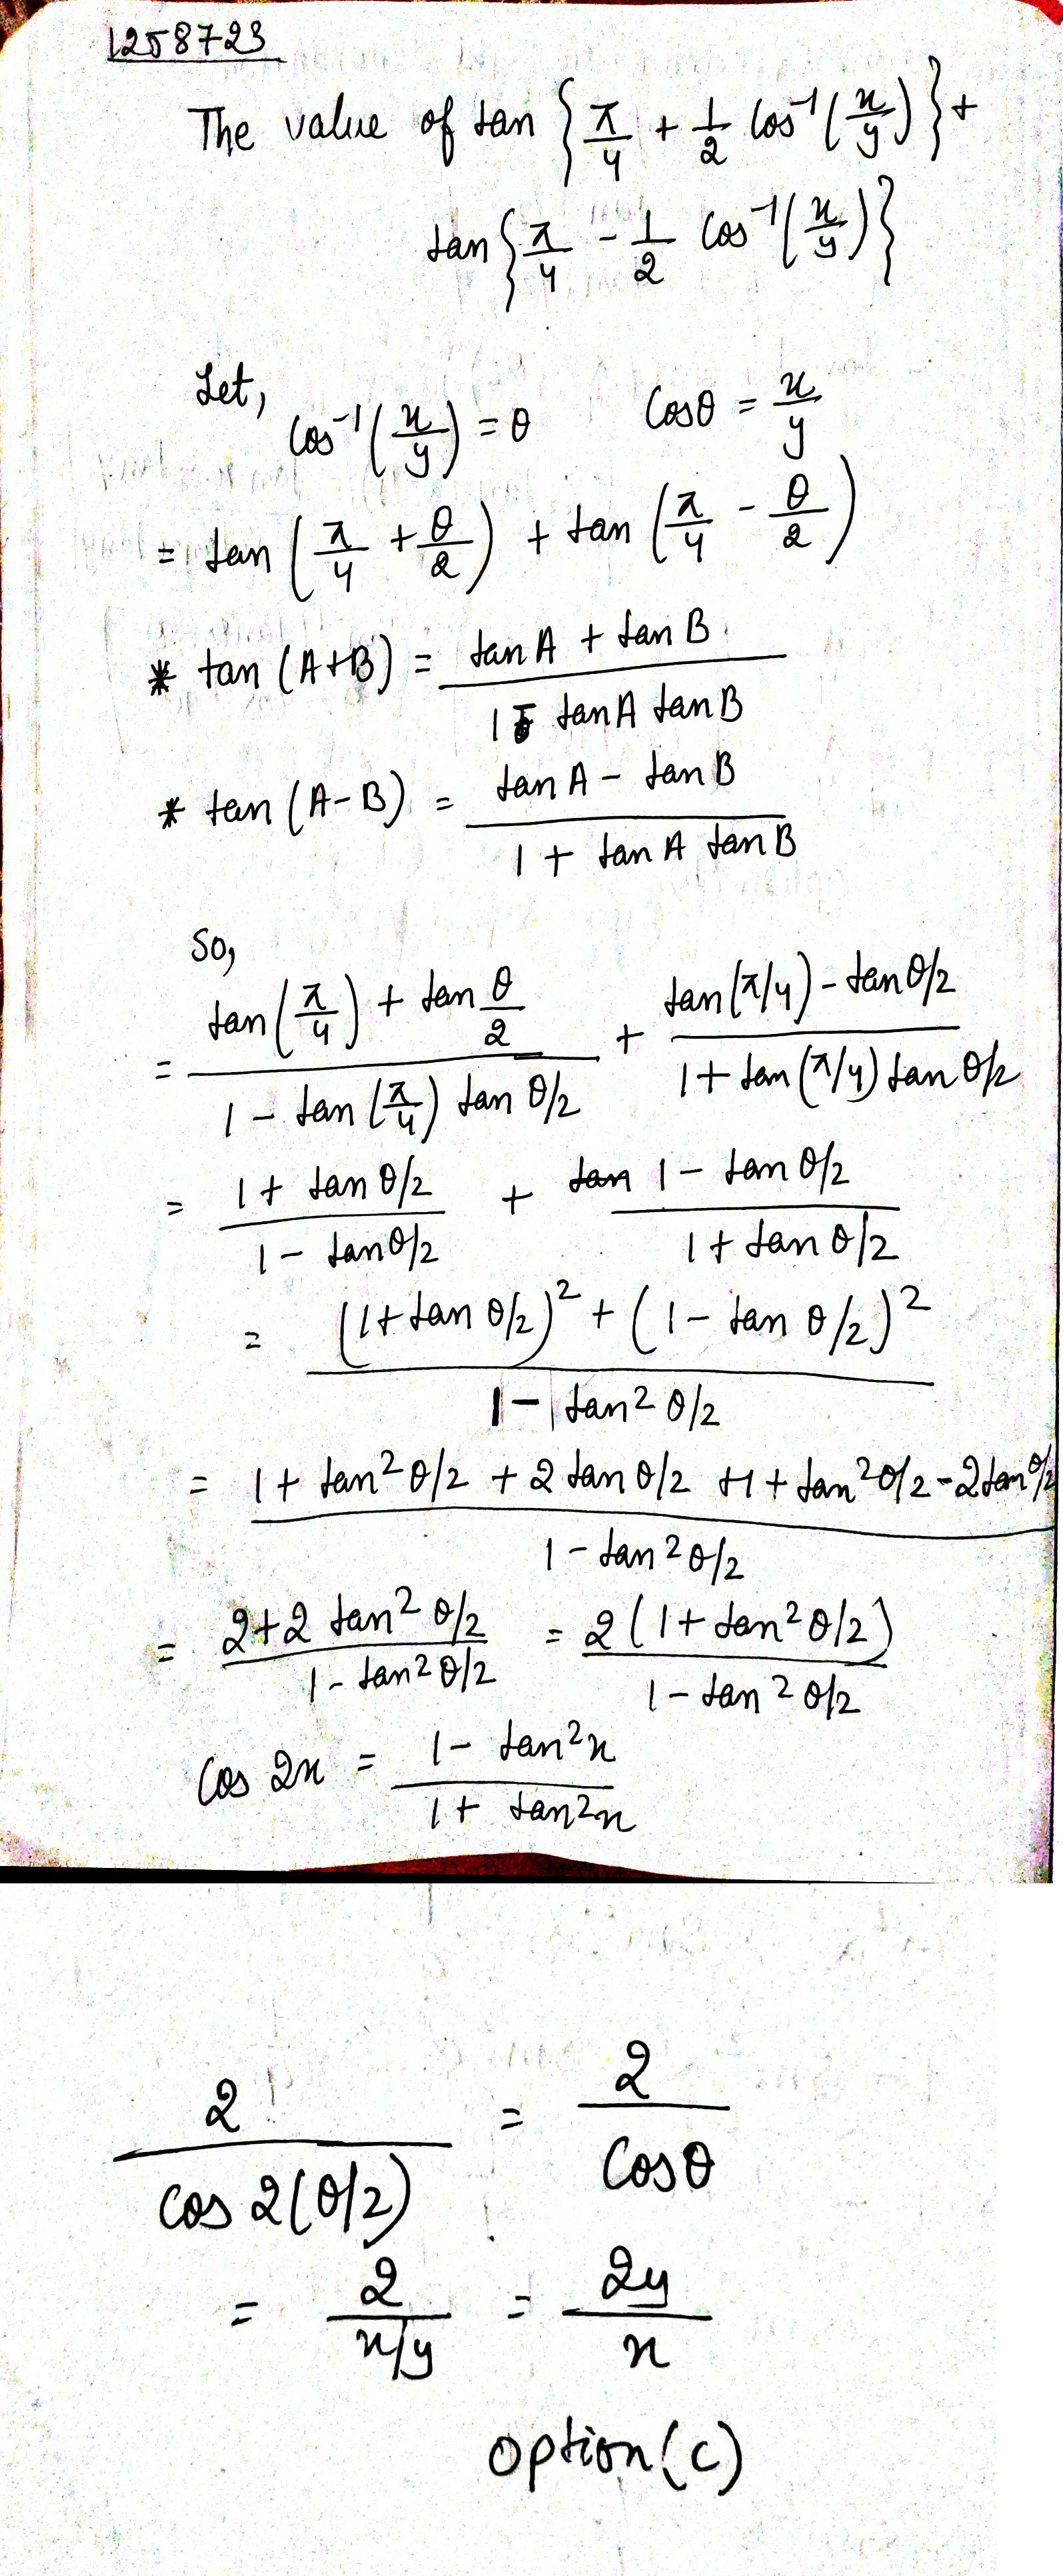 1258723
The value of tan {π/4 + 1/2 cos⁻¹(x/y)} +
tan {π/4 - 1/2 cos⁻¹(x/y)}
Let,
cos⁻¹(x/y) = θ cosθ = x/y
= tan (π/4 + θ/2) + tan (π/4 - θ/2)
* tan (A+B) = (tan A + tan B) / (1 - tan A tan B)
* tan (A-B) = (tan A - tan B) / (1 + tan A tan B)
So,
= (tan(π/4) + tan θ/2) / (1 - tan(π/4) tan θ/2) + (tan(π/4) - tan θ/2) / (1 + tan(π/4) tan θ/2)
= (1 + tan θ/2) / (1 - tan θ/2) + (1 - tan θ/2) / (1 + tan θ/2)
= ((1 + tan θ/2)² + (1 - tan θ/2)²) / (1 - tan² θ/2)
= (1 + tan² θ/2 + 2 tan θ/2 + 1 + tan² θ/2 - 2 tan θ/2) / (1 - tan² θ/2)
= (2 + 2 tan² θ/2) / (1 - tan² θ/2) = 2(1 + tan² θ/2) / (1 - tan² θ/2)
cos 2x = (1 - tan² x) / (1 + tan² x)
2 / cos 2(θ/2) = 2 / cosθ
= 2 / (x/y) = 2y / x
option (c)